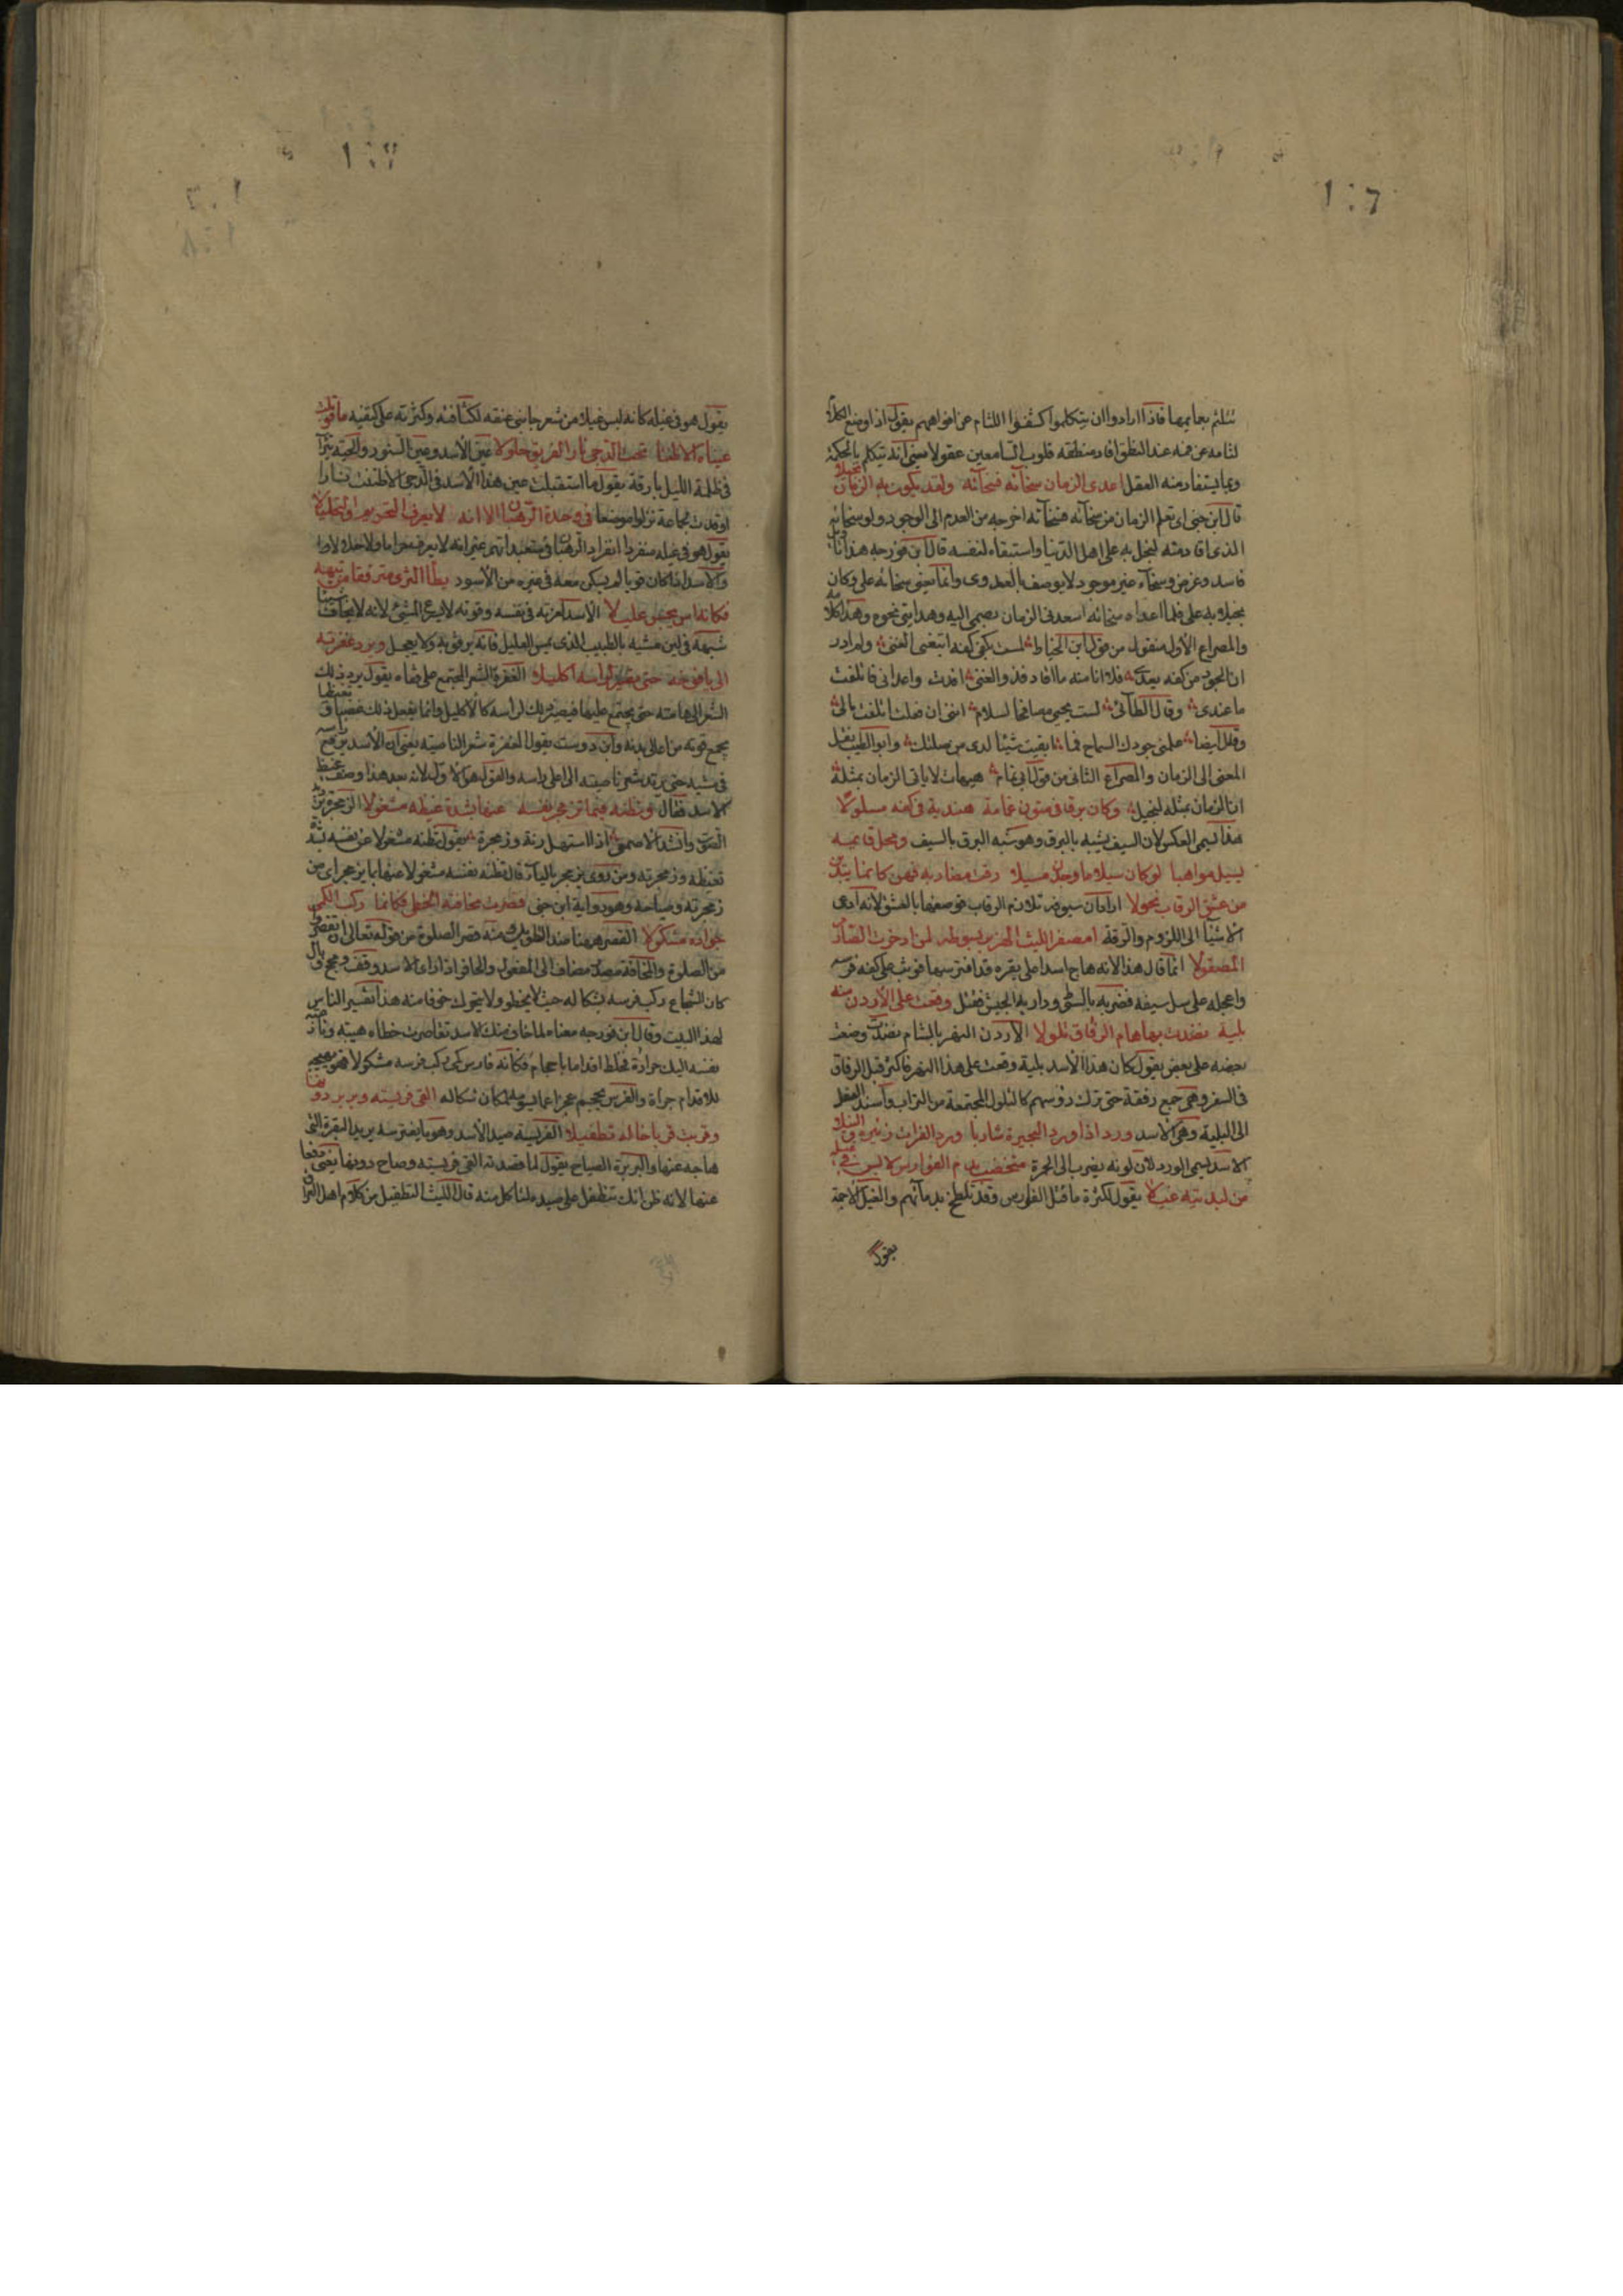 تتلثم بعمايمها فاذا ارادوا ان يتكلموا كشفوا اللثام عن افواههم يقول اذا وضع الكلام
لثامه عن فمه عند النطق افاد منطقه قلوب السامعين عقولا يعنى انه يتكلم بالحكمة
وبما يستفاد منه العقل اعدى الزمان سخآئه فسخابه ولقد يكون به الزمان بخيلا
قال ابن جنى اى تعلم الزمان من سخآئه فسخابه اخرجه من العدم الى الوجود ولولا سخائه
الذى افاد منه لبخل به على اهل الدنيا واستبقاه لنفسه قال ابن فورجه هذا تاويل
فاسد وغرض وسخآء غير موجود لا يوصف بالعدوى وانما يعنى سخائه على وكان
بخيلا به على فلما اعداه سخائه اسعدنى الزمان بضمى اليه وهدايتى نحوه وهذا كلامه
والمصراع الاول منقول من قول ابن الخياط لمست بكفى كفه ابتغى الغنى ولم ادر
ان الجود من كفه يعدى فلا انا منه ما افاد ذوو الغنى افدت واعدانى فاتلفت
ما عندى وقال الطآئى لست يحيى مصافحا لسلام اننى ان فعلت اتلفت مالى
وقال ايضا علمنى جودك السماح فما ابقيت شيئا لدى من صلتك وابو الطيب نقل
المعنى الى الزمان والمصراع الثانى من قول ابى تمام هيهات لا ياتى الزمان بمثله
ان الزمان بمثله لبخيل وكان برقا فى متون غمامة هندية فى كفه مسلولا
هذا ليس العكس لان السيف يشبه بالبرق وهو شبه البرق بالسيف ومحل قايمه
يسيل مواهبا لو كان سيلا ما وجدن مسيلا رقت مضاربه فهن كانما يبدين
من عشق الرقاب نحولا اراد ان سيوفه تلازم الرقاب فوصفها بالعشق لانه ادعى
الاشيآ الى اللزوم والرقة امعفر الليث الهزبر بسوطه لمن ادخرت الصارم
المصقولا انما قال هذا لانه هاج اسدا على بقرة قد افترسها فوثب على كفل فرسه
واعجله على سل سيفه فضربه بالسوط ودار به الجيش فقتل وقعت على الاردن منه
بلية نضدت بها هام الرفاق تلولا الاردن النهر بالشام نضدت وضعت
بعضه على بعض يقول كان هذا الاسد بلية وقعت على هذا النهر فاكثر قتل الرفاق
فى السفر وهى جمع رفقة حتى ترك رؤسهم كالتلول المجتمعة من التراب واسند الفعل
الى البلية وهى الاسد ورد اذا ورد البحيرة شاربا ورد الفرات زئيره والنيلا
الاسد يسمى الورد لان لونه يضرب الى الحمرة متخضب بدم الفوارس لابس فى غيله
من لبدتيه غيلا يقول لكثرة ما قتل الفوارس وقد تلطخ بدمآئهم والغيل الاجمة
يقول
يقول هو فى غيله كانه لبس غيلا من شعر جانبى عنقه لكثافته وكثرته على كتفيه ما قوبلت
عيناه الا ظنتا تحت الدجى نار الفريق حلولا عين الاسد وعين السنور والحية تترآ
فى ظلمة الليل بارقة يقول ما استقبلت عين هذا الاسد فى الدجى الا ظننت نارا
اوقدت لجماعة نزلوا موضعا فى وحدة الرهبان الا انه لا يعرف التحريم والتحليلا
يقول هو فى غيله منفردا انفراد الرهبان فى متعبداتهم غير انه لا يعرف حراما ولا حلالا
والاسد اذا كان قويا لم يسكن معه فى غيره من الاسود يطأ الثرى مترفقا من تيهه
فكانه اس يجس عليلا الاسد لعزته فى نفسه وقوته لا يسرع المشى لانه لا يخاف شيئا
شبهه فى لين مشيه بالطبيب الذى يمس العليل فانه يرفق به ولا يعجل ويرد غفرته
الى يافوخه حتى تصير لراسه اكليلا الغفرة الشعر المجتمع على قفاه يقول يرد ذلك
الشعر الى هامته حتى يجتمع عليها فيصير ذلك لراسه كالاكليل وانما يفعل ذلك غضبا تغيظا
يجمع قوته من اعالى بدنه وابن دوست يقول الغفرة شعر الناصية يعنى ان الاسد يرفع راسه
فى مشيه حتى يرتد شعر ناصيته الى اعلى راسه والقول هو الاول لانه بعد هذا وصف غيظ
الاسد فقال وتظنه مما تزمجر نفسه عنها بشدة غيظه مشغولا الزمجرة ترديد
الصوت وانشد الاصمعى اذا استهل رنة وزمجرة يقول تظنه مشغولا عن نفسه لشدة
تغيظه وزمجرته ومن روى يزمجر باليآء قال تظنه نفسه مشغولا عنها بما يزمجر اى من
زمجرته وصياحه وهو رواية ابن جنى قصرت مخافته الخطى فكانما ركب الكمى
جواده مشكولا القصر ههنا ضد التطويل ومنه قصر الصلوة من قوله تعالى ان تقصروا
من الصلوة والمخافة مصدر مضاف الى المفعول والخافر اذا راى الاسد وقف ومجمج وبال
كان الشجاع ركب فرسه بشكاله حيث لا يخطو ولا يتحرك خوفا منه هذا تفسير الناس
لهذا البيت وقال ابن فورجه معناه لما خاف منك الاسد تقاصرت خطاه هيبة ونازعته
نفسه اليك جرأة فخلط اقداما باحجام فكانه فارس كمى ركب فرسه مشكولا فهو يهيجه
للاقدام جرأة والفرس يحجم عجزا عما يسومه لمكان شكاله القى فريسته وبربر دونها
وقربت قربا خاله تطفيلا الفريسة صيد الاسد وهو ما يفترسه يريد البقرة التى
هاجه عنها والبربرة الصياح يقول لما قصدته القى فريسته وصاح دونها يعنى دفعا
عنها لانه ظن انك تتطفل على صيده لتاكل منه قال الليث التطفيل من كلام اهل العراق